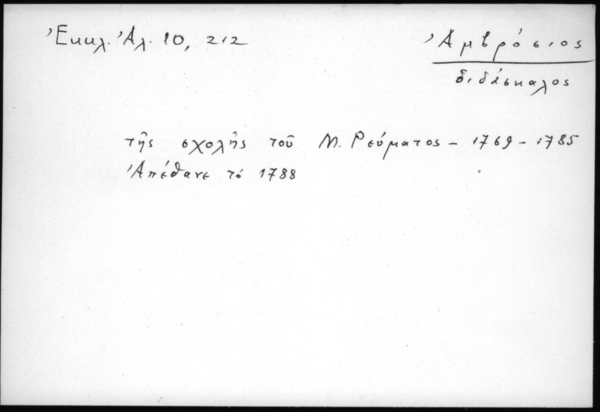 Ἐκκλ. Ἀλ. 10, 212
Ἀμβρόσιος
διδάσκαλος
τῆς σχολῆς τοῦ Μ. Ρεύματος – 1769 – 1785
Ἀπέθανε τὸ 1788